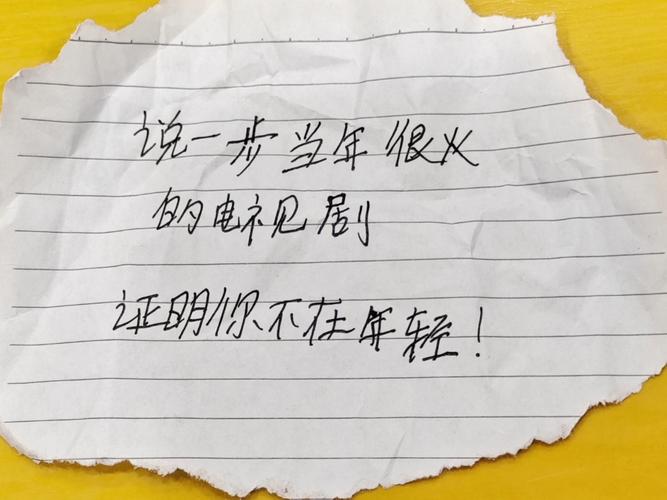 说一步当年很火
的电视剧
证明你不在年轻！